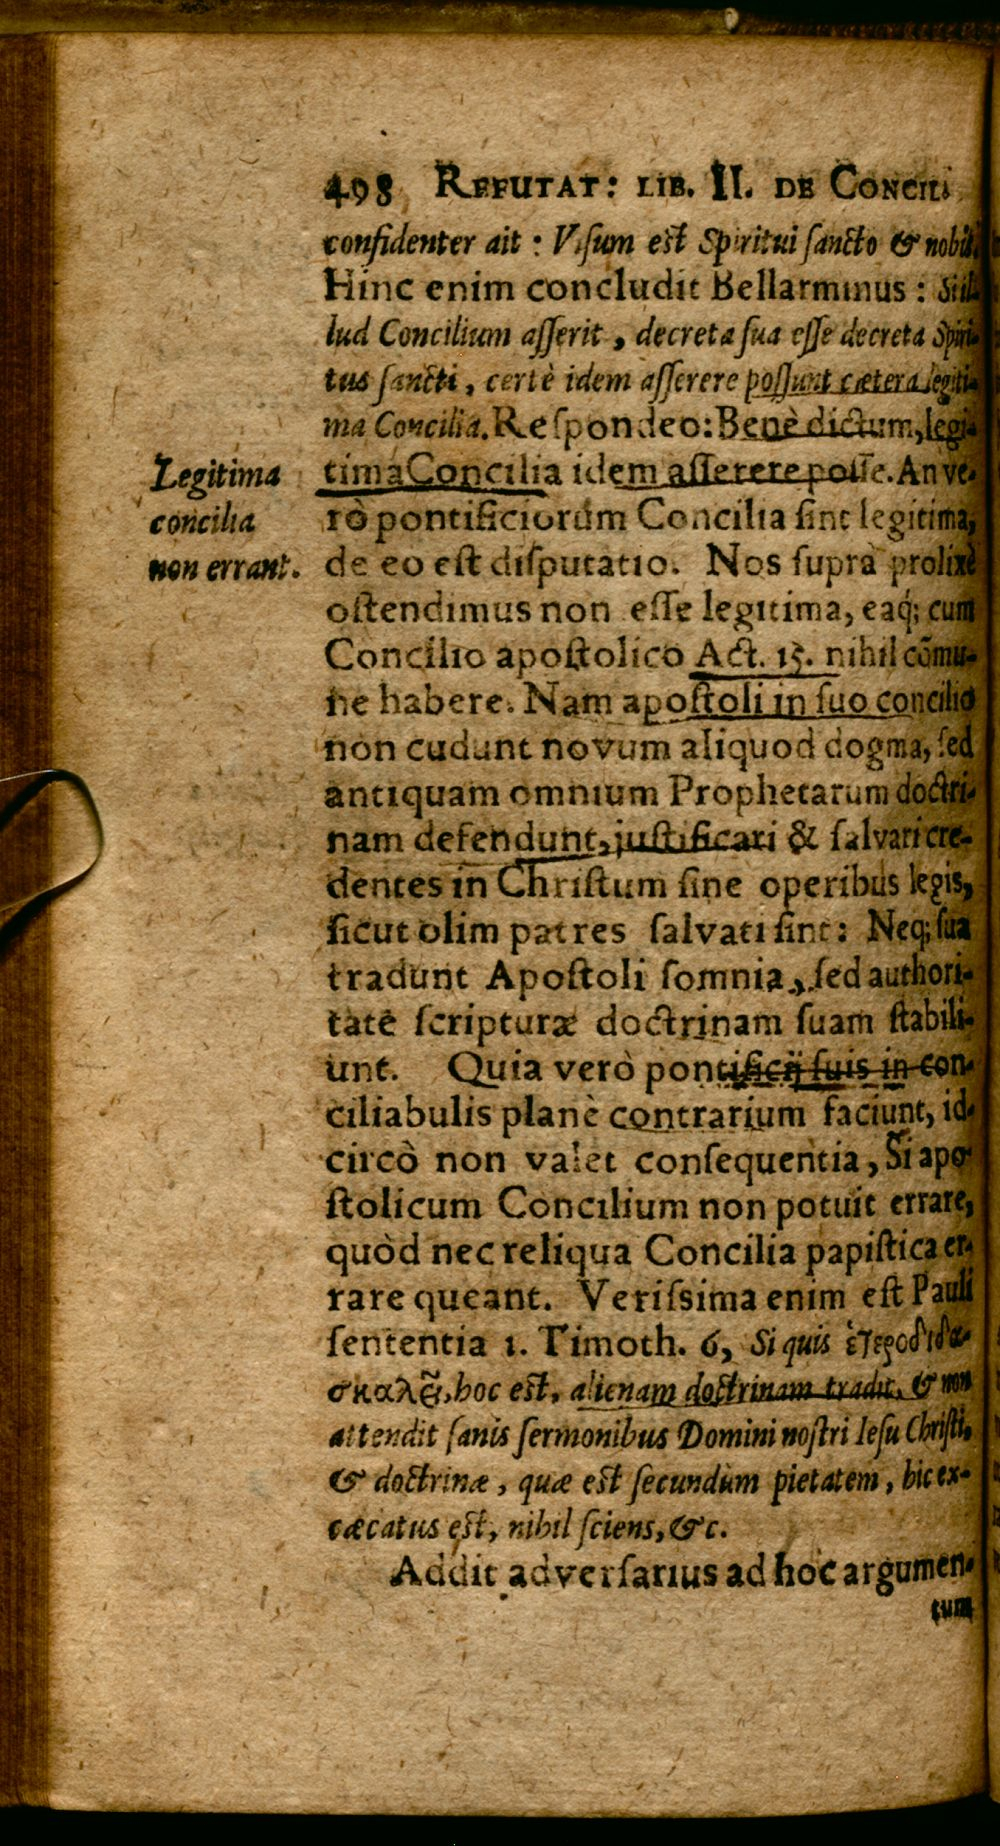 498 REFUTAT: LIB. II. DE CONCILI
confidenter ait: Visum eſt Spiritui ſancto & nobis.
Hinc enim concludit Bellarminus: Si il-
lud Concilium aſſerit, decreta ſua eſſe decreta Spiri-
tus ſancti, certè idem aſſerere poſſunt cætera legiti-
ma Concilia. Reſpondeo: Benè dictum, legi-
tima Concilia idem aſſerere poſſe. An ve-
rò pontificiorum Concilia ſint legitima,
de eo eſt diſputatio. Nos ſuprà prolixè
oſtendimus non eſſe legitima, eaq́; cum
Concilio apoſtolico Act. 15. nihil cõmu-
ne habere. Nam apoſtoli in ſuo concilio
non cudunt novum aliquod dogma, ſed
antiquam omnium Prophetarum doctri-
nam defendunt, juſtificari & ſalvari cre-
dentes in Chriſtum ſine operibus legis,
ſicut olim patres ſalvati ſint: Neq; ſua
tradunt Apoſtoli ſomnia, ſed authori-
tate ſcripturæ doctrinam ſuam ſtabili-
unt. Quia verò pontificij ſuis in con-
ciliabulis planè contrarium faciunt, id-
circò non valet conſequentia, Si apo-
ſtolicum Concilium non potuit errare,
quòd nec reliqua Concilia papiſtica er-
rare queant. Veriſsima enim eſt Pauli
ſententia 1. Timoth. 6, Si quis ἑτεροδιδα-
σκαλεῖ, hoc eſt, alienam doctrinam tradit, & non
attendit ſanis ſermonibus Domini noſtri Ieſu Chriſti,
& doctrinæ, quæ eſt ſecundùm pietatem, hic ex-
cæcatus eſt, nihil ſciens, &c.
Addit adverſarius ad hoc argumen-
tum
Legitima
concilia
non errant.